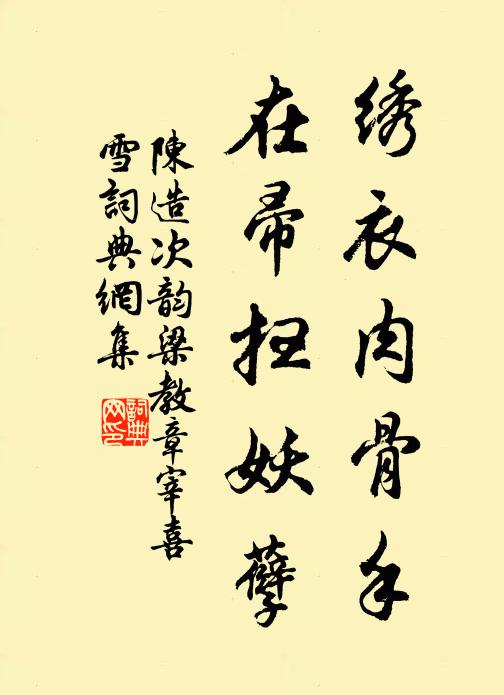 绣衣肉骨手
在帚扫妖孽
陳造次韵梁教章宰喜
雪詞典網集
詞典
网印